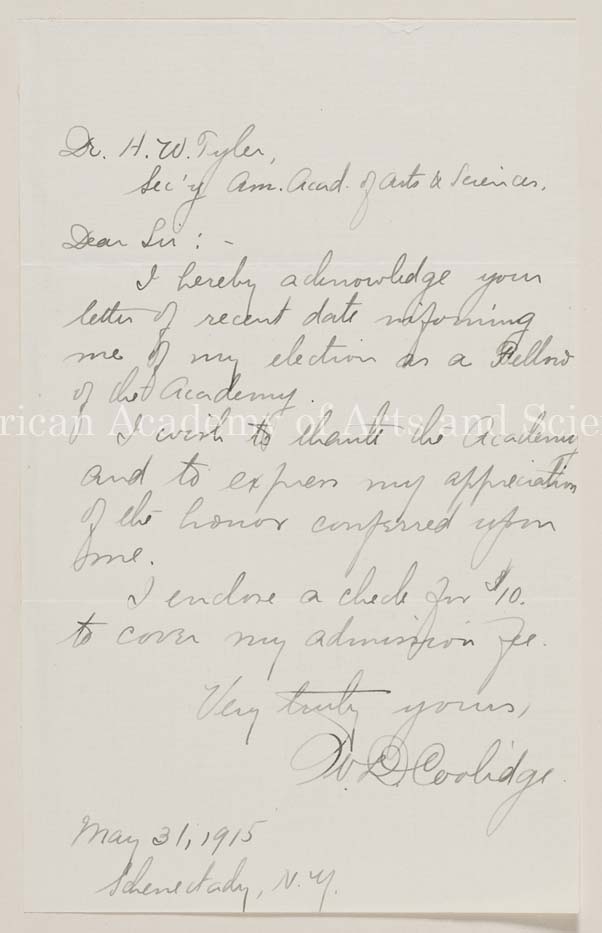 Dr. H. W. Tyler,
Sec'y Am. Acad. of Arts & Sciences.
Dear Sir: -
I hereby acknowledge your
letter of recent date informing
me of my election as a Fellow
of the Academy.
rican Academy of Arts and Scie
I wish to thank the Academy
and to express my appreciation
of the honor conferred upon
me.
I enclose a check for $10.
to cover my admission fee.
Very truly yours,
W. D. Coolidge.
May 31, 1915
Schenectady, N.Y.